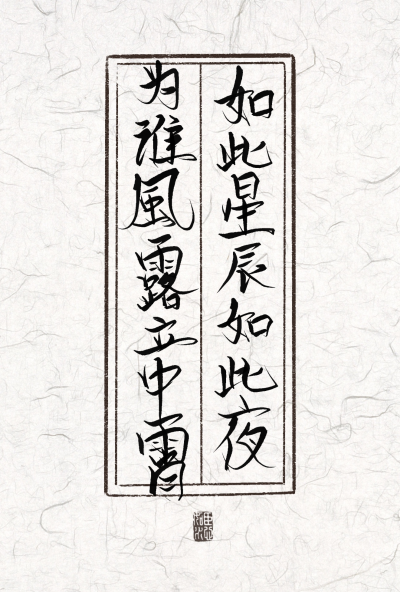 如此星辰如此夜
为谁風露立中霄